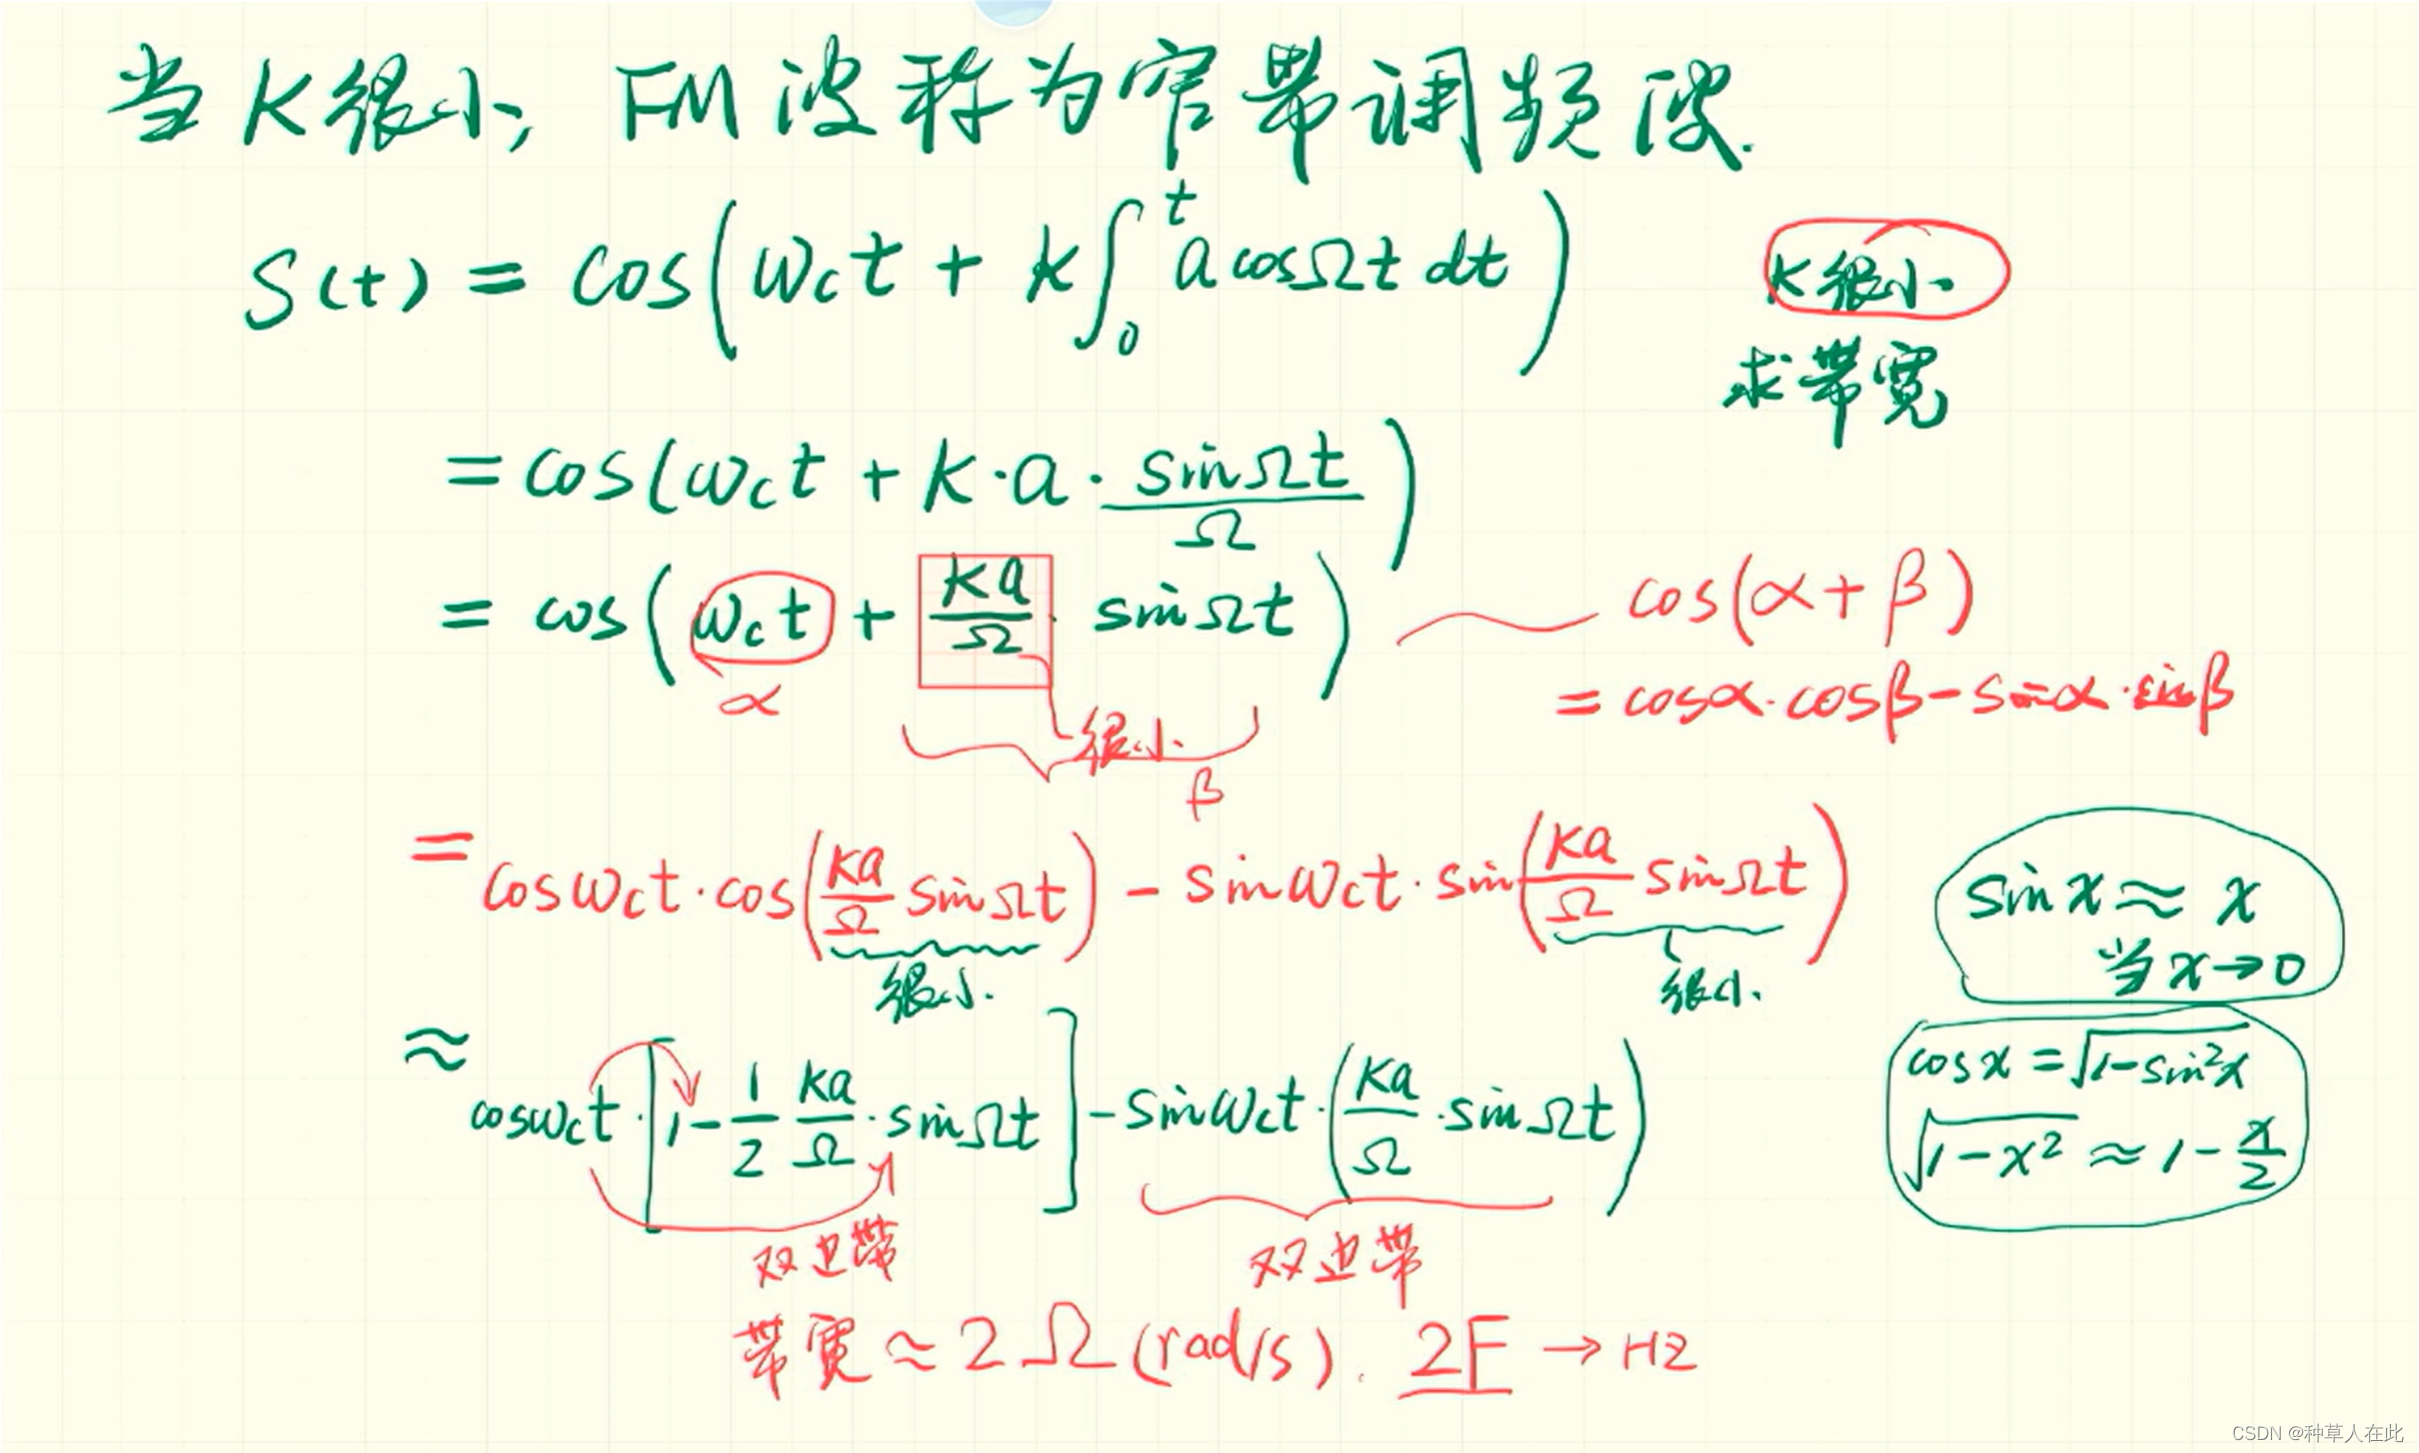 当K很小, FM波称为窄带调频波.
S(t) = cos(ωct + k∫₀ᵗ a cosΩt dt)
K很小
求带宽
= cos(ωct + K·a·sinΩt/Ω)
= cos(ωct + Ka/Ω · sinΩt)
α
很小
β
cos(α+β)
= cosα·cosβ - sinα·sinβ
= cosωct·cos(Ka/Ω sinΩt) - sinωct·sin(Ka/Ω sinΩt)
很小.
很小.
sin x ≈ x
当x→0
≈ cosωct·[1 - 1/2 Ka/Ω · sinΩt] - sinωct·(Ka/Ω · sinΩt)
cos x = √(1-sin²x)
√(1-x²) ≈ 1 - x/2
双边带
双边带
带宽 ≈ 2Ω (rad/s). 2F → HZ
CSDN @种草人在此